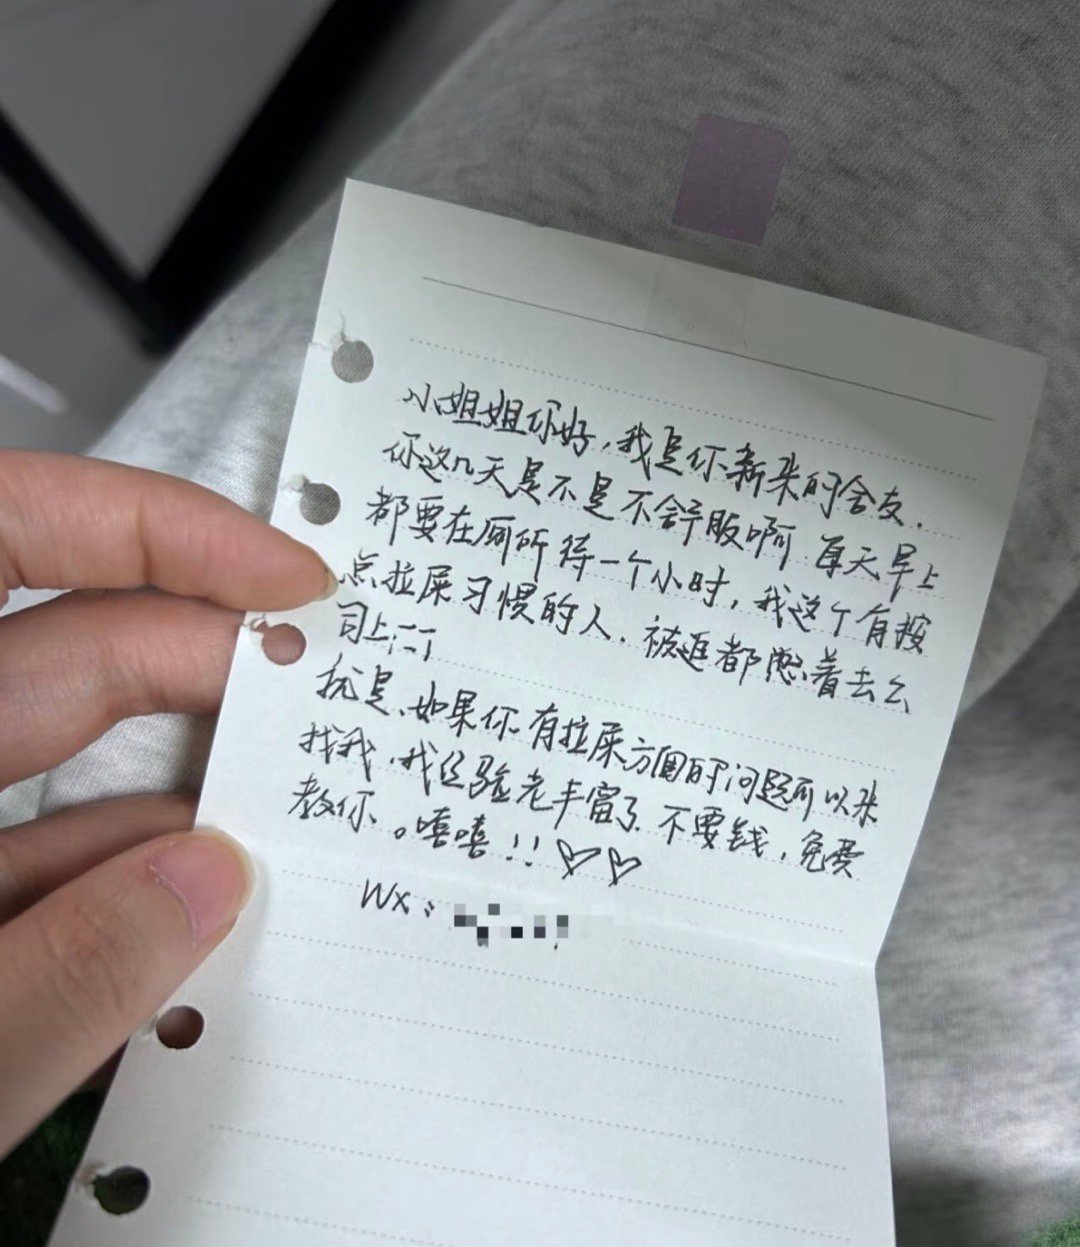 小姐姐你好，我是你新来的舍友.
你这几天是不是不舒服啊.每天早上
都要在厕所待一个小时，我这个有按
点拉屎习惯的人.被迫都憋着去公
司上二丁
就是.如果你有拉屎方面的问题可以来
找我.我经验老丰富了.不要钱，免费
教你。嘻嘻！！♡♡
Wx：